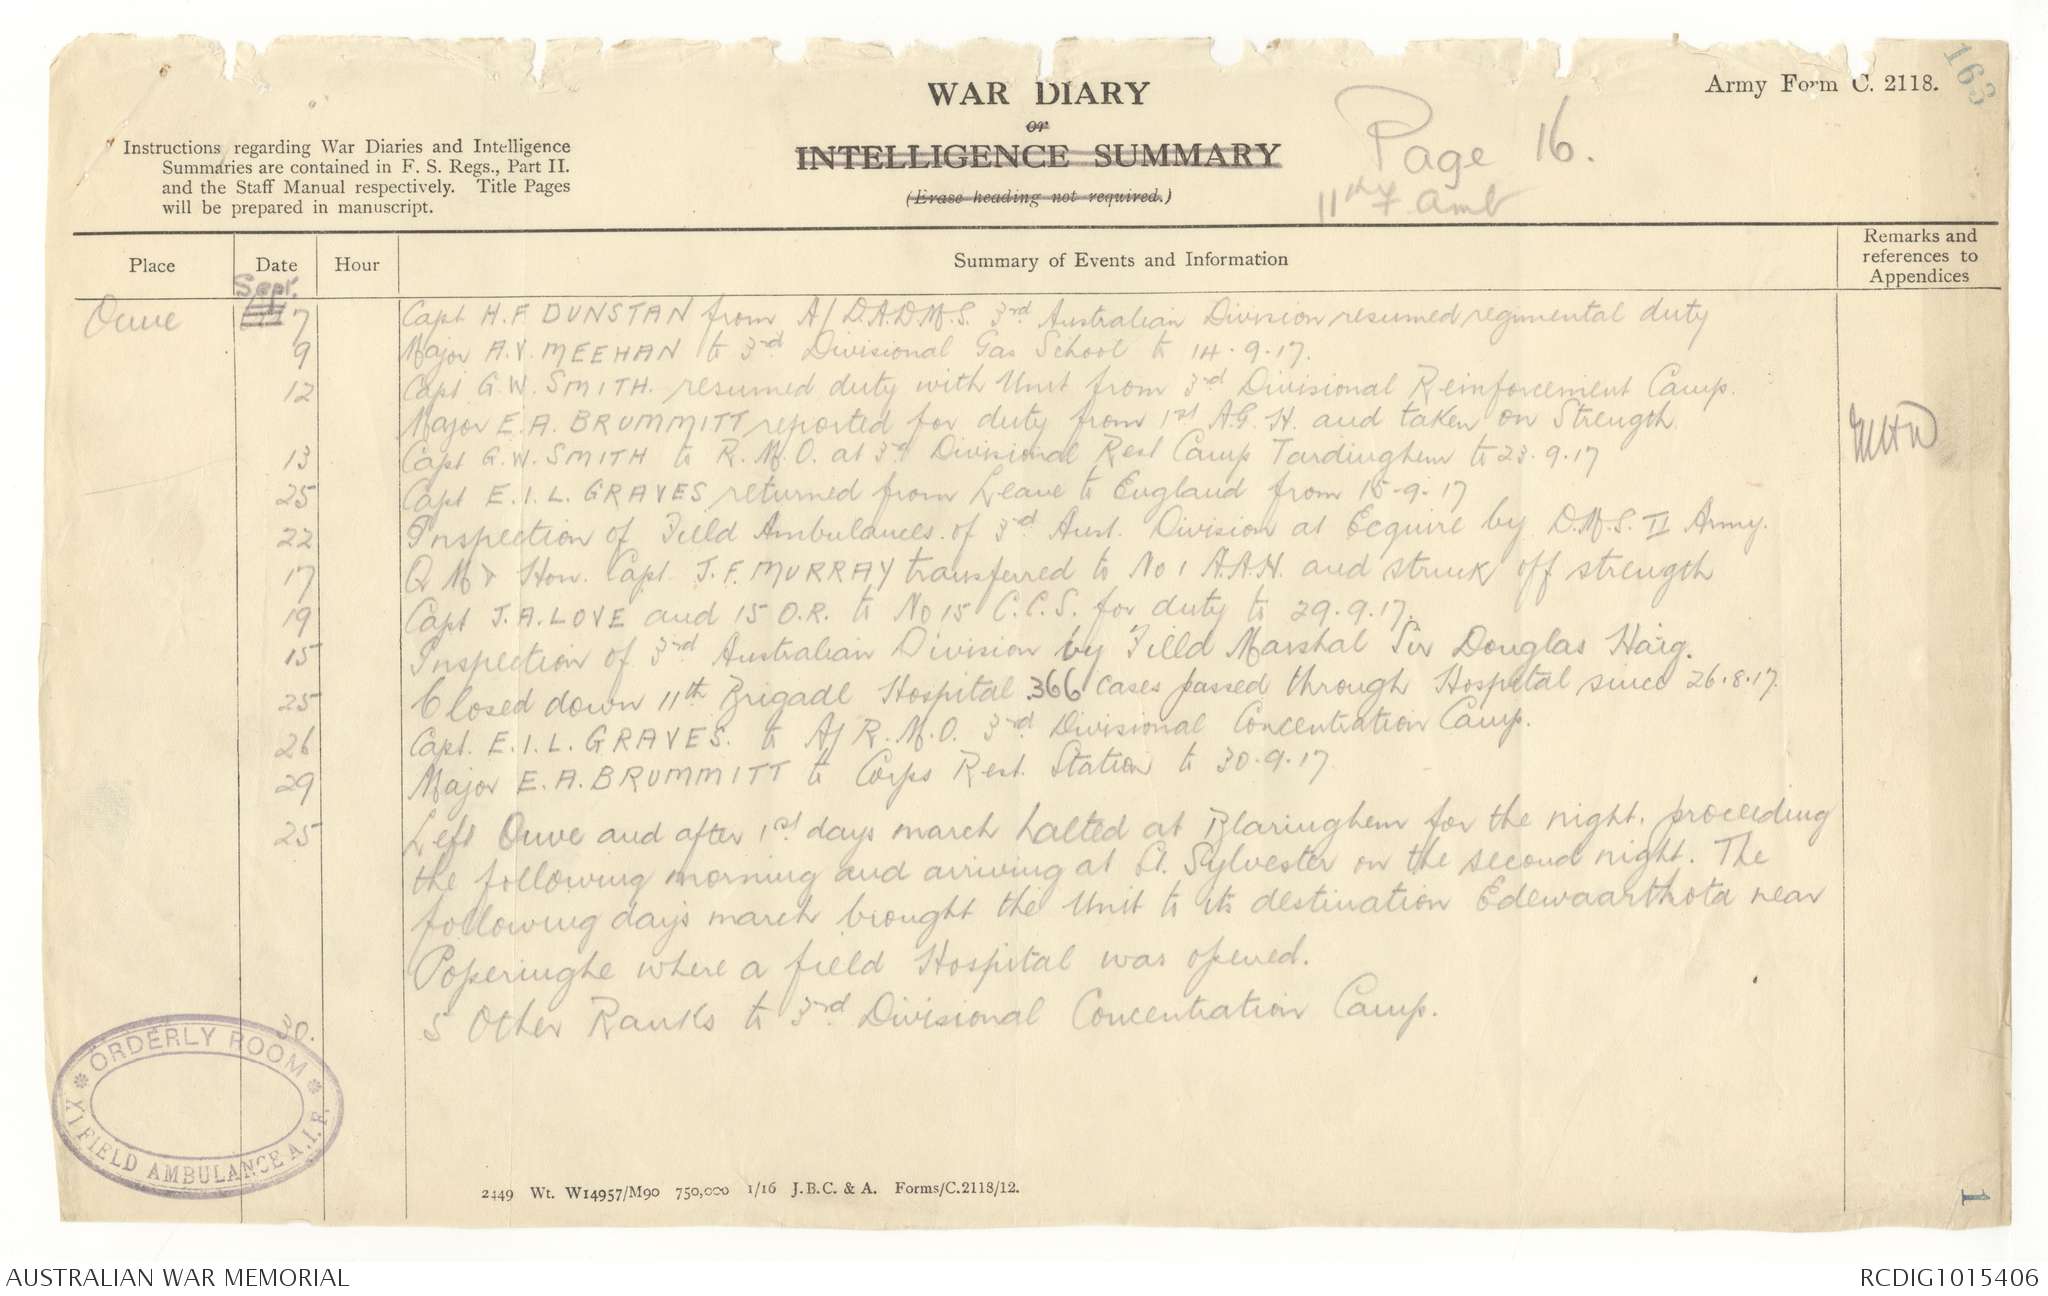 163
WAR DIARY
or
INTELLIGENCE SUMMARY
(Erase heading not required.)
Army Form C. 2118.
Page 16.
11th F. Amb
Instructions regarding War Diaries and Intelligence
Summaries are contained in F. S. Regs., Part II.
and the Staff Manual respectively. Title Pages
will be prepared in manuscript.
Place Date Hour Summary of Events and Information Remarks and references to Appendices
Sept.
Ouve 7 Capt H.F. DUNSTAN from A/D.A.D.M.S. 3rd Australian Division resumed regimental duty
9 Major A.V. MEEHAN to 3rd Divisional Gas School to 14.9.17.
12 Capt G.W. SMITH. resumed duty with Unit from 3rd Divisional Reinforcement Camp.
Major E.A. BRUMMITT reported for duty from 1st A.G.H. and taken on Strength.
13 Capt G.W. SMITH to R.M.O. at 3rd Divisional Rest Camp Tardinghem to 23.9.17
25 Capt E.I.L. GRAVES returned from Leave to England from 15.9.17
22 Inspection of Field Ambulances of 3rd Aust. Division at Ecquire by D.M.S. II Army.
17 Q M & Hon. Capt. J.F. MURRAY transferred to No 1 A.A.H. and struck off strength
19 Capt J.A. LOVE and 15 O.R. to No 15 C.C.S. for duty to 29.9.17.
15 Inspection of 3rd Australian Division by Field Marshal Sir Douglas Haig.
25 Closed down 11th Brigade Hospital 366 cases passed through Hospital since 26.8.17.
26 Capt. E.I.L. GRAVES. to A/R.M.O. 3rd Divisional Concentration Camp.
29 Major E.A. BRUMMITT to Corps Rest Station to 30.9.17
25 Left Ouve and after 1st days march halted at Blaringhem for the night. proceeding
the following morning and arriving at St. Sylvester on the second night. The
following days march brought the Unit to its destination Edewaarthota near
Poperinghe where a field Hospital was opened.
30. 5 Other Ranks to 3rd Divisional Concentration Camp.
ORDERLY ROOM
XI FIELD AMBULANCE A.I.F.
2449 Wt. W14957/M90 750,000 1/16 J.B.C. & A. Forms/C.2118/12.
1
AUSTRALIAN WAR MEMORIAL RCDIG1015406